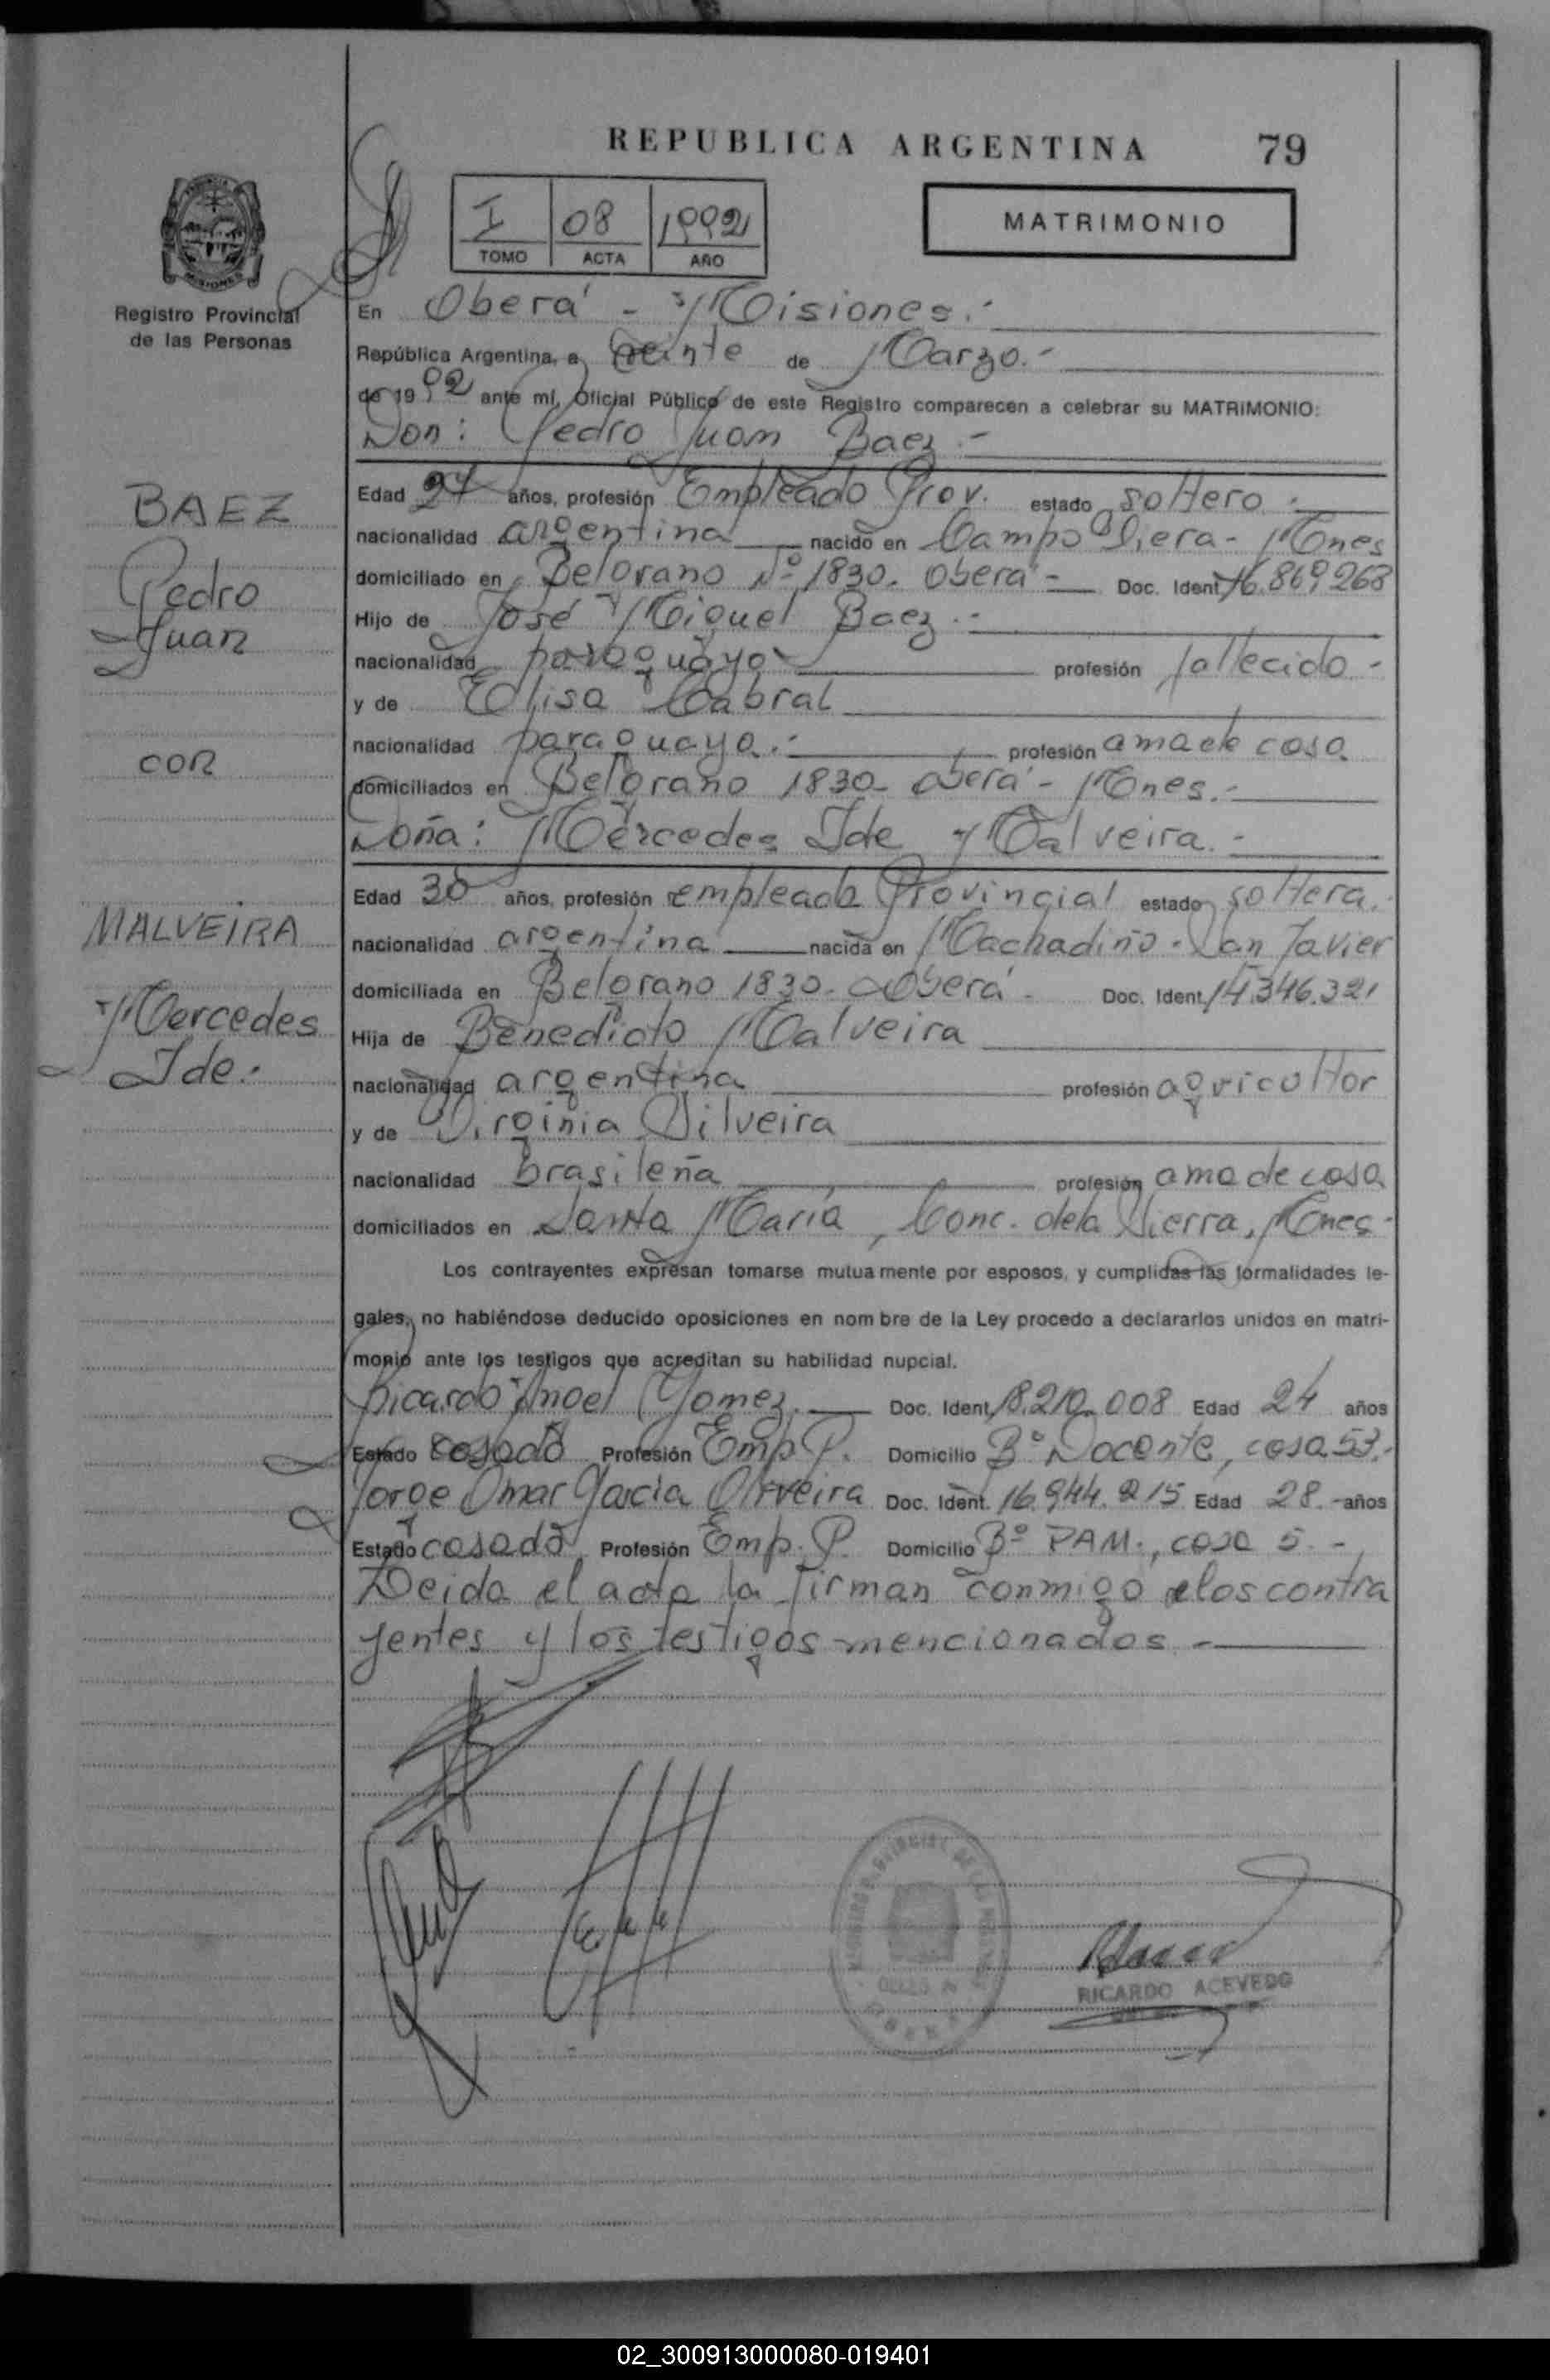 REPUBLICA ARGENTINA 79
MATRIMONIO
I 08 1992
TOMO ACTA AÑO
PROVINCIA
MISIONES
Registro Provincial
de las Personas
En Oberá - Misiones.-
República Argentina, a veinte de Marzo.-
de 1992 ante mí, Oficial Público de este Registro comparecen a celebrar su MATRIMONIO:
Don: Pedro Juan Baez.-
BAEZ
Pedro
Juan
COR
MALVEIRA
Mercedes
Ide.-
Edad 27 años, profesión Empleado Prov. estado soltero.-
nacionalidad argentina nacido en Campo Viera - Mnes
domiciliado en Belgrano Nº 1830. Oberá - Doc. Ident 16.869.268
Hijo de José Miguel Baez.-
nacionalidad paraguayo - profesión fallecido -
y de Elisa Cabral
nacionalidad paraguaya.- profesión ama de casa
domiciliados en Belgrano 1830 - Oberá - Mnes.-
Doña: Mercedes Ide Malveira.-
Edad 30 años, profesión empleada Provincial estado soltera.-
nacionalidad argentina nacida en Machadiño - San Javier
domiciliada en Belgrano 1830 - Oberá - Doc. Ident. 14.346.321
Hija de Benedicto Malveira
nacionalidad argentina profesión agricultor
y de Virginia Silveira
nacionalidad brasileña profesión ama de casa
domiciliados en Santa María, Conc. de la Sierra, Mnes -
Los contrayentes expresan tomarse mutuamente por esposos, y cumplidas las formalidades le-
gales, no habiéndose deducido oposiciones en nombre de la Ley procedo a declararlos unidos en matri-
monio ante los testigos que acreditan su habilidad nupcial.
Ricardo Angel Gomez. Doc. Ident. 18.210.008 Edad 24 años
Estado casado Profesión Emp. P. Domicilio Bº Docente, casa 53.-
Jorge Omar Garcia Oliveira Doc. Ident. 16.944.215 Edad 28.- años
Estado casado Profesión Emp. P. Domicilio Bº PAM., casa 5.-
Leida el acta la firman conmigo los contra
yentes y los testigos mencionados.-
RICARDO ACEVEDO
02_300913000080-019401